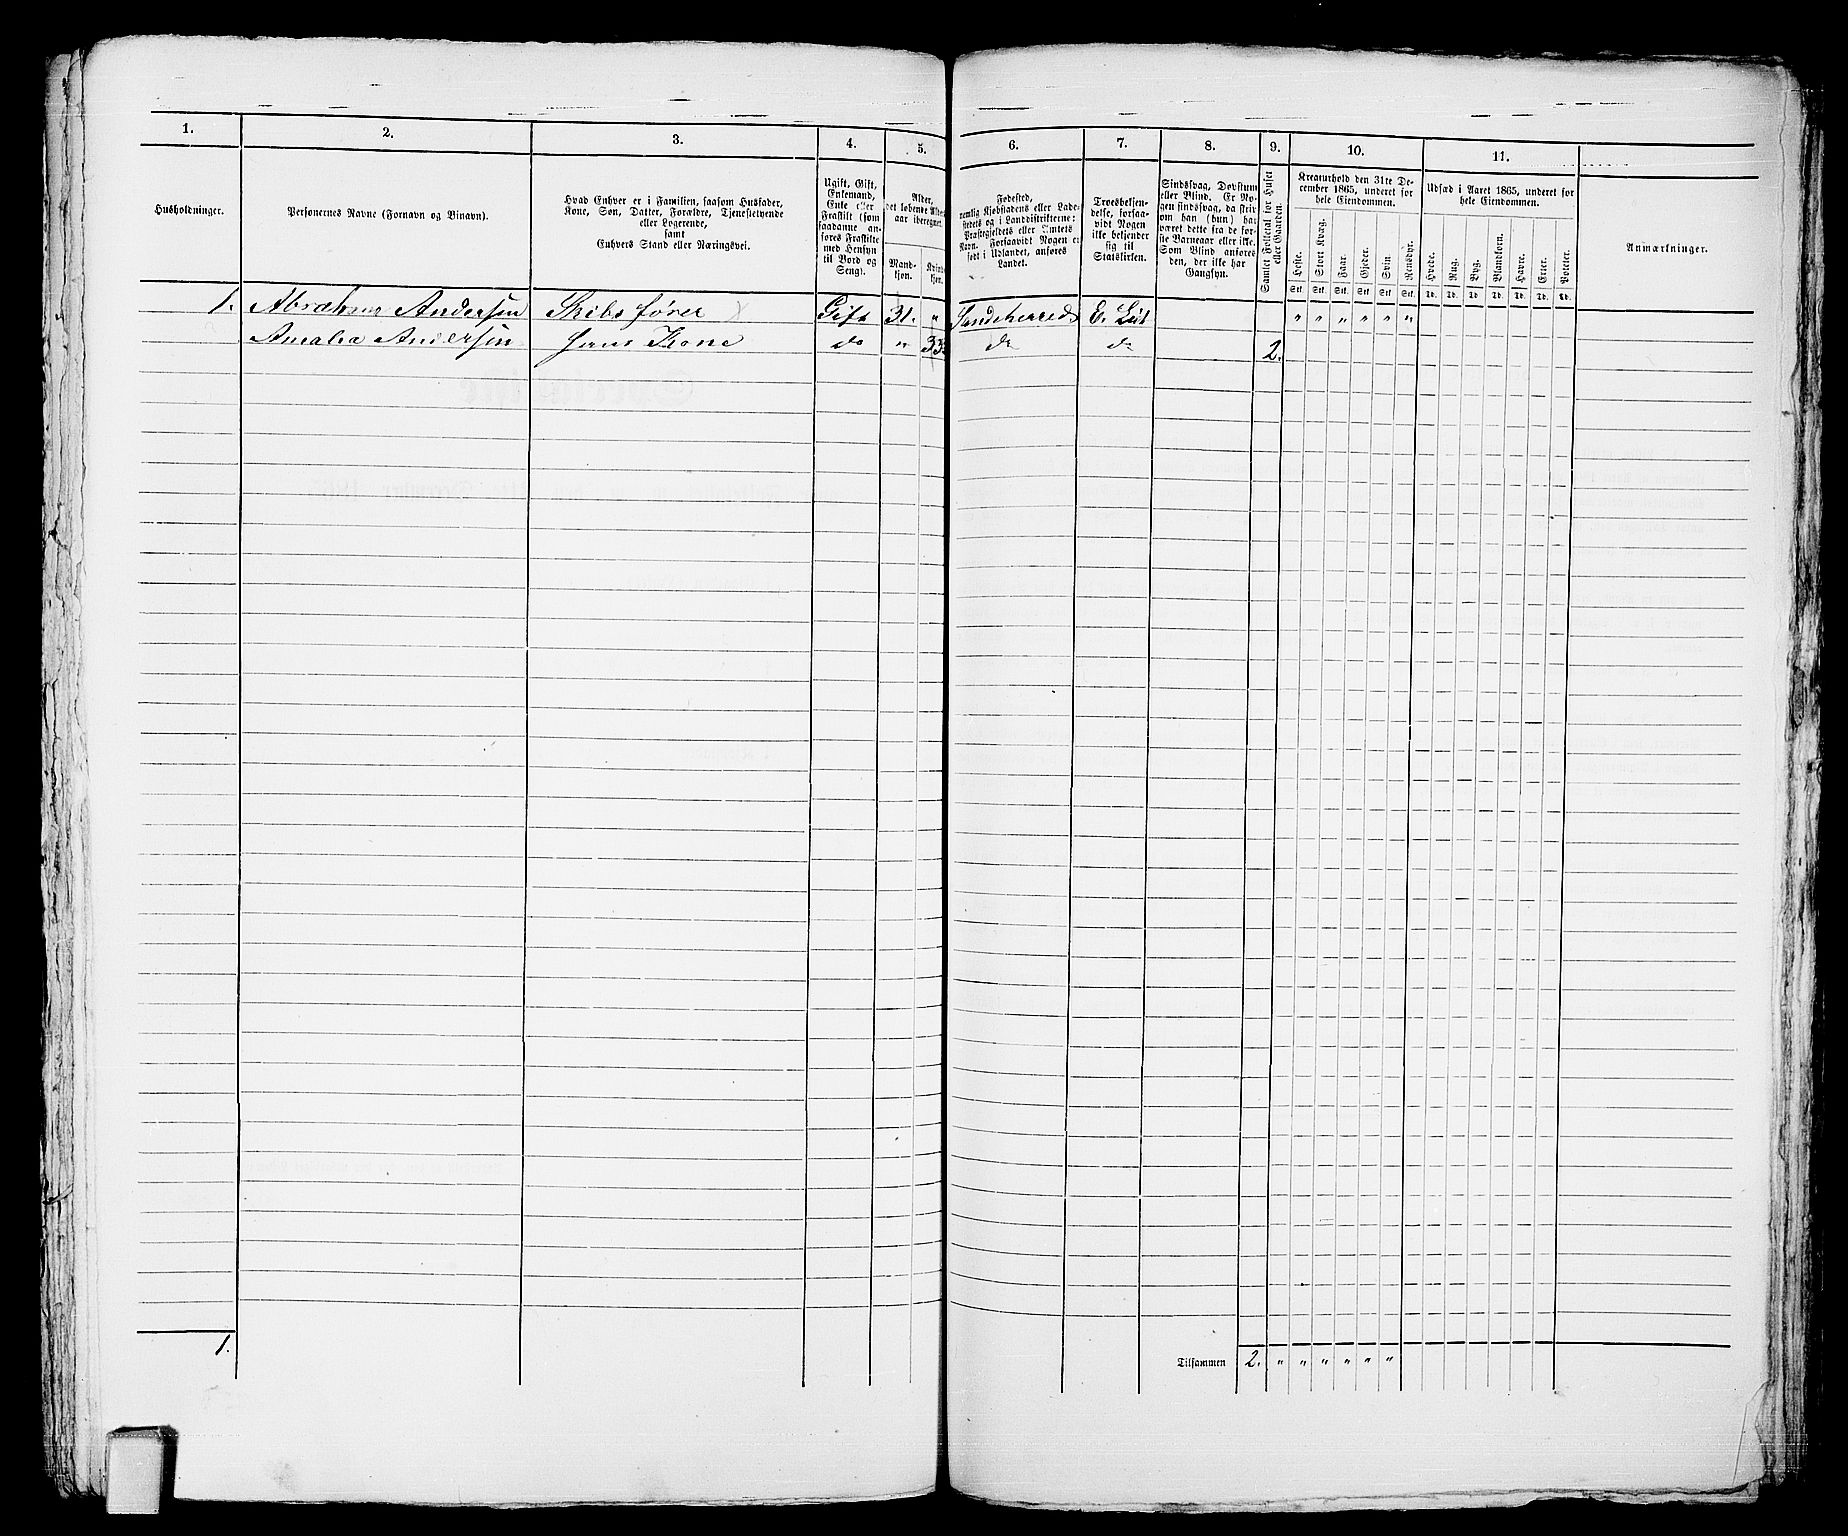 1. 2. 3. 4. 5. 6. 7. 8. 9. 10. 11.
Husholdninger.
Personernes Navne (Fornavn og Binavn).
Hvad Enhver er i Familien, saasom Husfader,
Kone, Søn, Datter, Forældre, Tjenestetyende
eller Logerende,
samt
Enhvers Stand eller Næringsvei.
Ugift, Gift,
Enkemand,
Enke eller
Fraskilt (som
saadanne an-
føres Fraskilte
med Hensyn
til Bord og
Seng).
Alder,
det løbende Alders-
aar iberegnet.
Mand-
kjøn.
Kvinde-
kjøn.
Fødested,
nemlig Kjøbstadens eller Lade-
stedets og i Landdistrikterne:
Præstegjeldets eller Amtets
Navn. Forsaavidt Nogen er
født i Udlandet, anføres
Landet.
Troesbekjen-
delse, forsaa-
vidt Nogen
ikke bekjender
sig til
Statskirken.
Sindssvag, Døvstum
eller Blind. Er No-
gen sindssvag, da skriv
om han (hun) har
været dette fra de før-
ste Barneaar eller ikke.
Som Blind anføres
den, der ikke har
Gangsyn.
Samlet Folketal for Huset
eller Gaarden.
Kreaturhold den 31te De-
cember 1865, underet for
hele Eiendommen.
Heste. Stort Kvæg. Faar. Gjeder. Sviin. Rensdyr.
Stk. Stk. Stk. Stk. Stk. Stk.
Udsæd i Aaret 1865, underet for
hele Eiendommen.
Hvede. Rug. Byg. Blandkorn. Havre. Erter. Poteter.
Td. Td. Td. Td. Td. Td. Td.
Anmærkninger.
1. Abrahm Andersen Skibsfører Gift 31. " Sandeherred E. Lut " " " " " "
Amalia Andersen Hans Kone do " 33 do do 2.
1. Tilsammen 2. " " " " " "